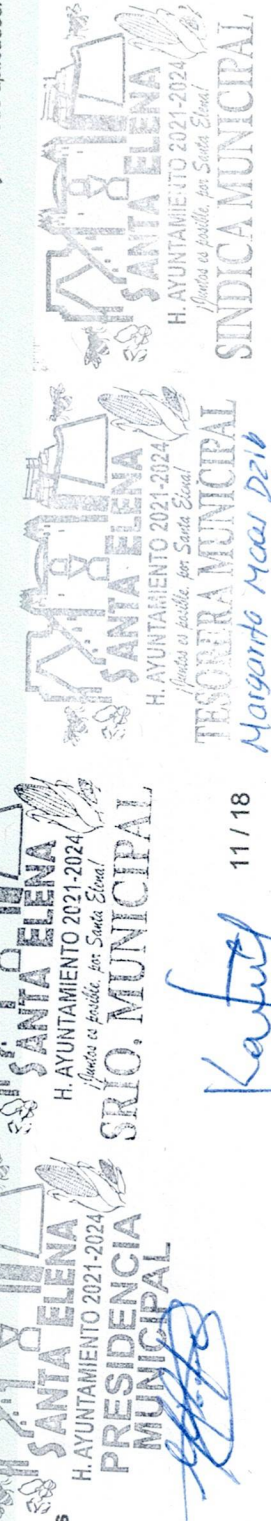 SANTA ELENA
H. AYUNTAMIENTO 2021-2024
PRESIDENCIA
MUNICIPAL
SANTA ELENA
H. AYUNTAMIENTO 2021-2024
¡Juntos es posible, por Santa Elena!
SRIO. MUNICIPAL
11 / 18
SANTA ELENA
H. AYUNTAMIENTO 2021-2024
¡Juntos es posible, por Santa Elena!
TESORERA MUNICIPAL
Margarita Mcaas Dzib
SANTA ELENA
H. AYUNTAMIENTO 2021-2024
¡Juntos es posible, por Santa Elena!
SINDICA MUNICIPAL